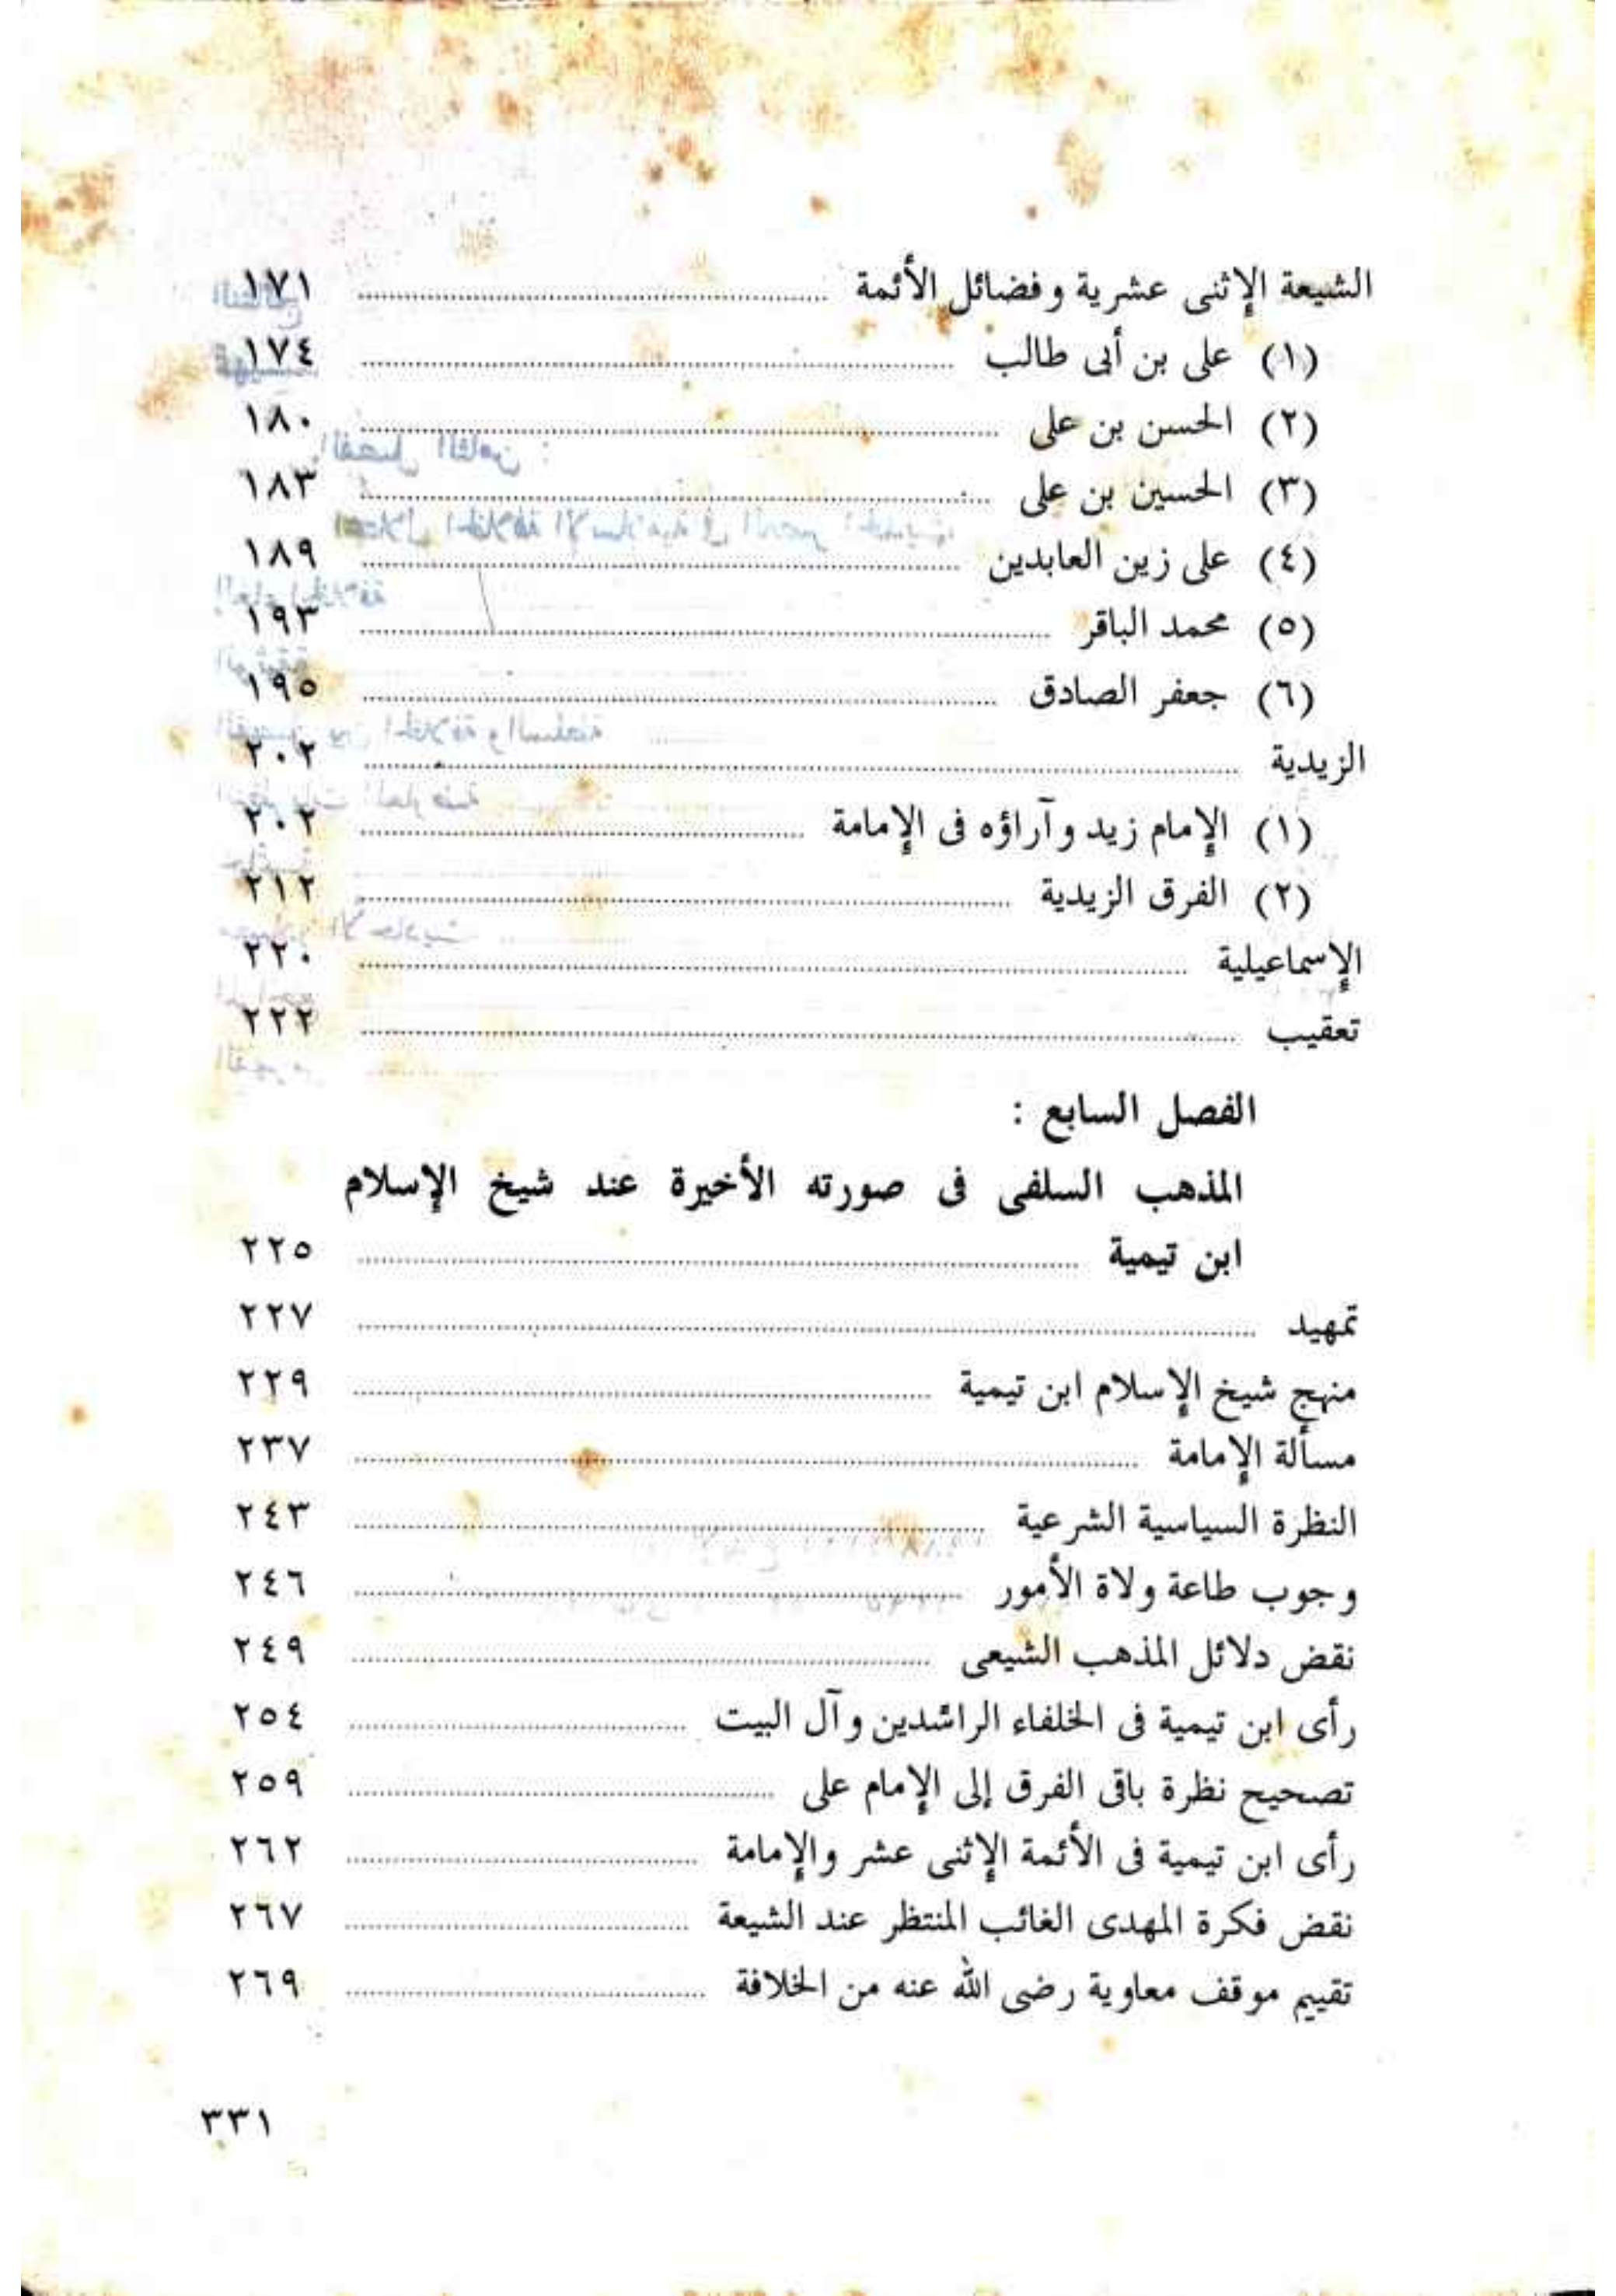 الشيعة الإثنى عشرية وفضائل الأئمة ........ ١٧١
(١) على بن أبى طالب ........ ١٧٤
(٢) الحسن بن على ........ ١٨٠
(٣) الحسين بن على ........ ١٨٣
(٤) على زين العابدين ........ ١٨٩
(٥) محمد الباقر ........ ١٩٣
(٦) جعفر الصادق ........ ١٩٥
الزيدية ........ ٢٠٢
(١) الإمام زيد وآراؤه فى الإمامة ........ ٢٠٢
(٢) الفرق الزيدية ........ ٢١٢
الإسماعيلية ........ ٢٢٠
تعقيب ........ ٢٢٢
الفصل السابع :
المذهب السلفى فى صورته الأخيرة عند شيخ الإسلام
ابن تيمية ........ ٢٢٥
تمهيد ........ ٢٢٧
منهج شيخ الإسلام ابن تيمية ........ ٢٢٩
مسألة الإمامة ........ ٢٣٧
النظرة السياسية الشرعية ........ ٢٤٣
وجوب طاعة ولاة الأمور ........ ٢٤٦
نقض دلائل المذهب الشيعى ........ ٢٤٩
رأى ابن تيمية فى الخلفاء الراشدين وآل البيت ........ ٢٥٤
تصحيح نظرة باقى الفرق إلى الإمام على ........ ٢٥٩
رأى ابن تيمية فى الأئمة الإثنى عشر والإمامة ........ ٢٦٢
نقض فكرة المهدى الغائب المنتظر عند الشيعة ........ ٢٦٧
تقييم موقف معاوية رضى الله عنه من الخلافة ........ ٢٦٩
٣٣١